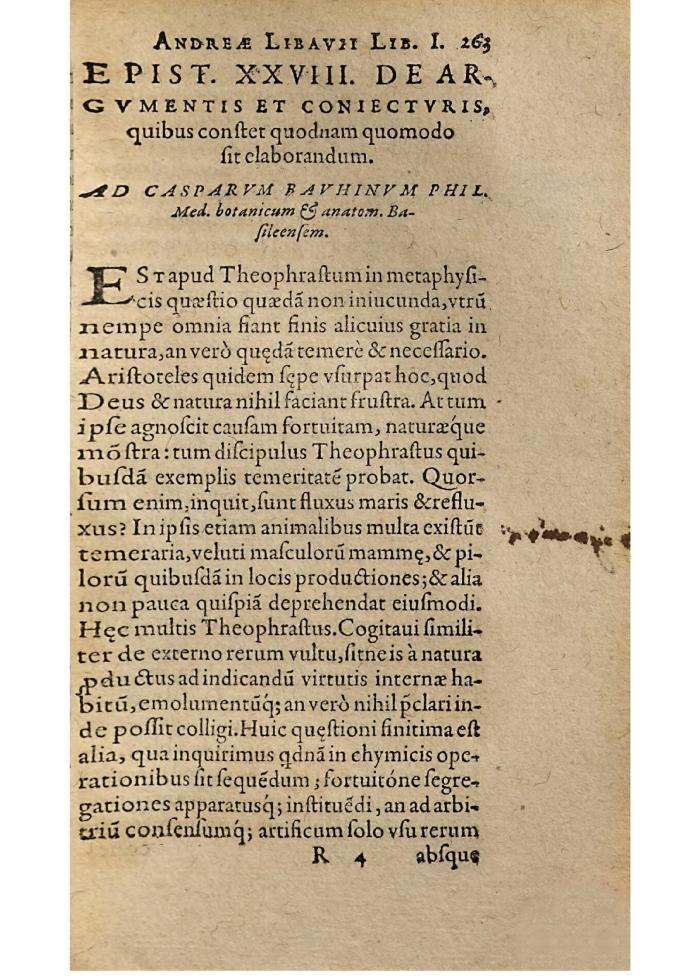 ANDREÆ LIBAVII LIB. I. 263
EPIST. XXVIII. DE AR-
GVMENTIS ET CONIECTVRIS,
quibus conſtet quodnam quomodo
ſit elaborandum.
AD CASPARVM BAVHINVM PHIL.
Med. botanicum & anatom. Ba-
ſileenſem.
ESTapud Theophraſtum in metaphyſi-
cis quæſtio quædã non iniucunda, vtrũ
nempe omnia fiant finis alicuius gratia in
natura, an verò quędã temerè & neceſſario.
Ariſtoteles quidem ſępe vſurpat hoc, quod
Deus & natura nihil faciant fruſtra. At tum
ipſe agnoſcit cauſam fortuitam, naturæque
mõſtra: tum diſcipulus Theophraſtus qui-
buſdã exemplis temeritatẽ probat. Quor-
ſum enim, inquit, ſunt fluxus maris & reflu-
xus? In ipſis etiam animalibus multa exiſtũt
temeraria, veluti maſculorũ mammę, & pi-
lorũ quibuſdã in locis productiones; & alia
non pauca quiſpiã deprehendat eiuſmodi.
Hęc multis Theophraſtus. Cogitaui ſimili-
ter de externo rerum vultu, ſitne is à natura
ꝓductus ad indicandũ virtutis internæ ha-
bitũ, emolumentũq́; an verò nihil p̃clari in-
de poſſit colligi. Huic quęſtioni finitima eſt
alia, qua inquirimus qdnã in chymicis ope-
rationibus ſit ſequẽdum; fortuitóne ſegre-
gationes apparatusq́; inſtituẽdi, an ad arbi-
triũ conſenſumq́; artificum ſolo vſu rerum
R 4 absque